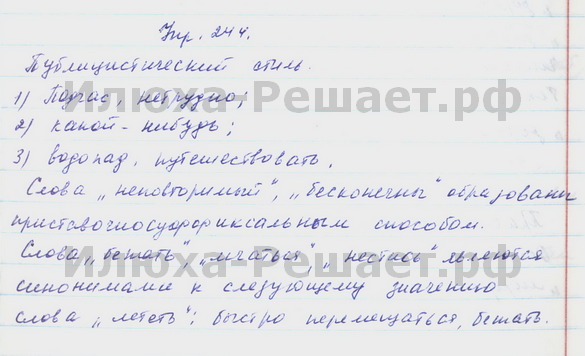 Упр. 244.
Публицистический стиль.
1) Подчас, нетрудно;
2) какой-нибудь;
3) водопад, путешествовать.
Слова „неповторимый", „бесконечны" образованы
приставочносуффиксальным способом.
Слова „бежать", „мчаться", „нестись" являются
синонимами к следующему значению
слова „лететь": быстро перемещаться, бежать.
Илюха-Решает.рф
Илюха-Решает.рф